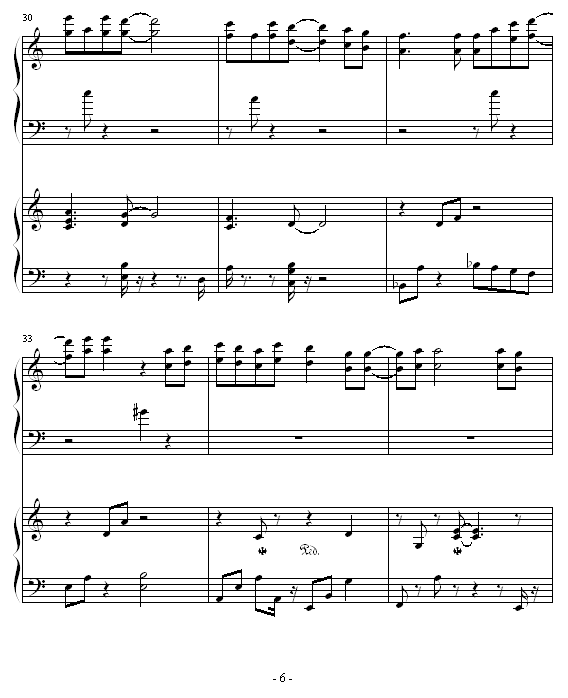 30
33
Ped.
- 6 -